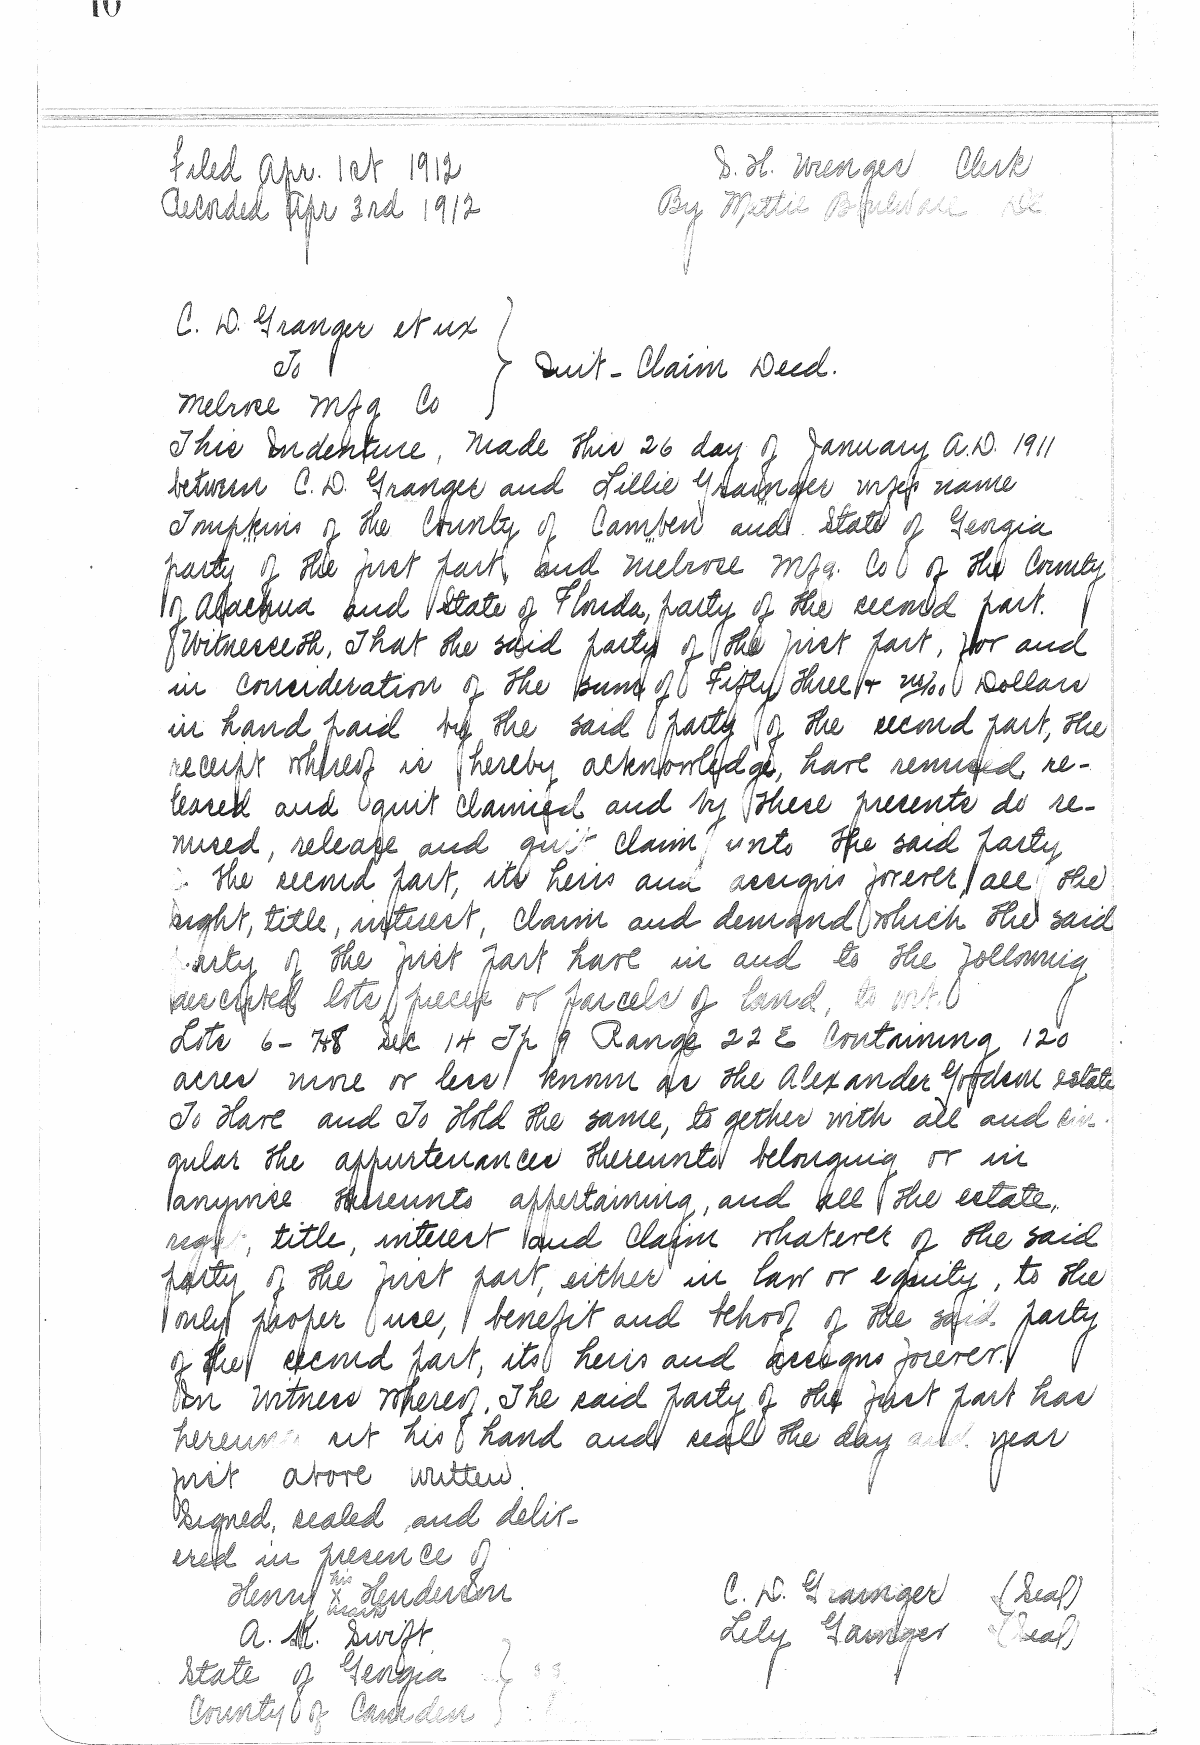 10
Filed Apr. 1st 1912 S. H. Wienges Clerk
Recorded Apr 3rd 1912 By Mettie DC
C. D. Granger et ux
To
Quit-Claim Deed.
Melrose Mfg Co
This Indenture, Made this 26 day of January A.D. 1911
between C. D. Granger and Lillie Grainger name
Tompkins of the County of Camben and State of Georgia
party of the first part, and Melrose Mfg. Co of the County
of Alachua and State of Florida, party of the second part.
Witnesseth, That the said party of the first part, for and
in consideration of the sum of Fifty three & no/00 Dollars
in hand paid by the said party of the second part, the
receipt whereof is hereby acknowledge, have remised, re-
leased and quit claimed and by these presents do re-
mised, release and quit claim unto the said party
the second part, its heirs and assigns forever, all the
right, title, interest, claim and demand which the said
party of the first part have in and to the following
described lots pieces or parcels of land, to wit.
Lots 6-7&8 Sec 14 Tp 9 Range 22 E Containing 120
acres more or less known as the Alexander Goodson estate
To Have and To Hold the same, together with all and sin-
gular the appurtenances thereunto belonging or in
anywise thereunto appertaining, and all the estate,
right, title, interest and claim whatever of the said
party of the first part, either in law or equity, to the
only proper use, benefit and behoof of the said party
of the second part, its heirs and assigns forever.
In Witness Whereof, The said party of the first part has
hereunto set his hand and seal the day and year
first above written.
Signed, sealed and deliv-
ered in presence of
Henry his X mark Henderson C. D. Grainger (Seal)
A. K. Swift Lily Gainger (Seal)
State of Georgia
County of Camden